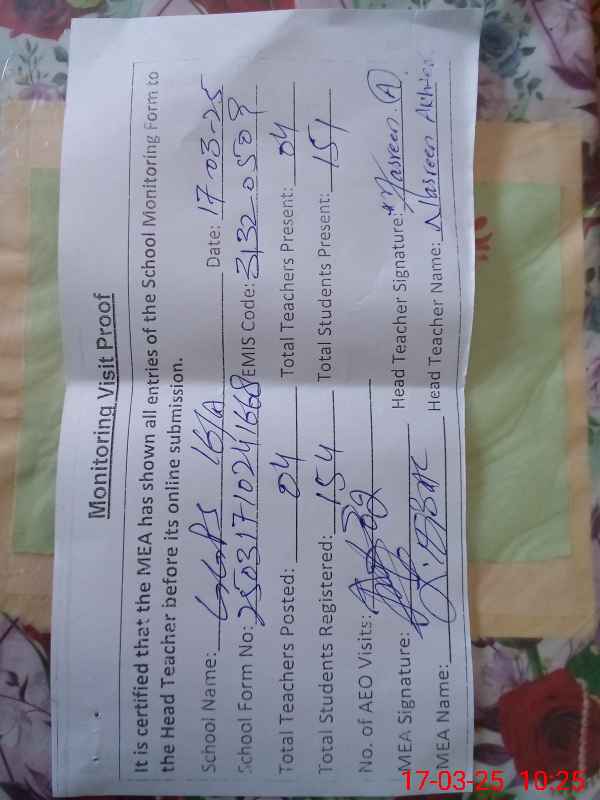 Monitoring Visit Proof
It is certified that the MEA has shown all entries of the School Monitoring Form to
the Head Teacher before its online submission.
School Name: GGPS 16/A Date: 17-03-25
School Form No: 25031710241668 EMIS Code: 31320509
Total Teachers Posted: 04 Total Teachers Present: 04
Total Students Registered: 154 Total Students Present: 151
No. of AEO Visits:
MEA Signature: Head Teacher Signature: Nasreen (A)
MEA Name: Head Teacher Name: Nasreen Akhtar
17-03-25 10:25